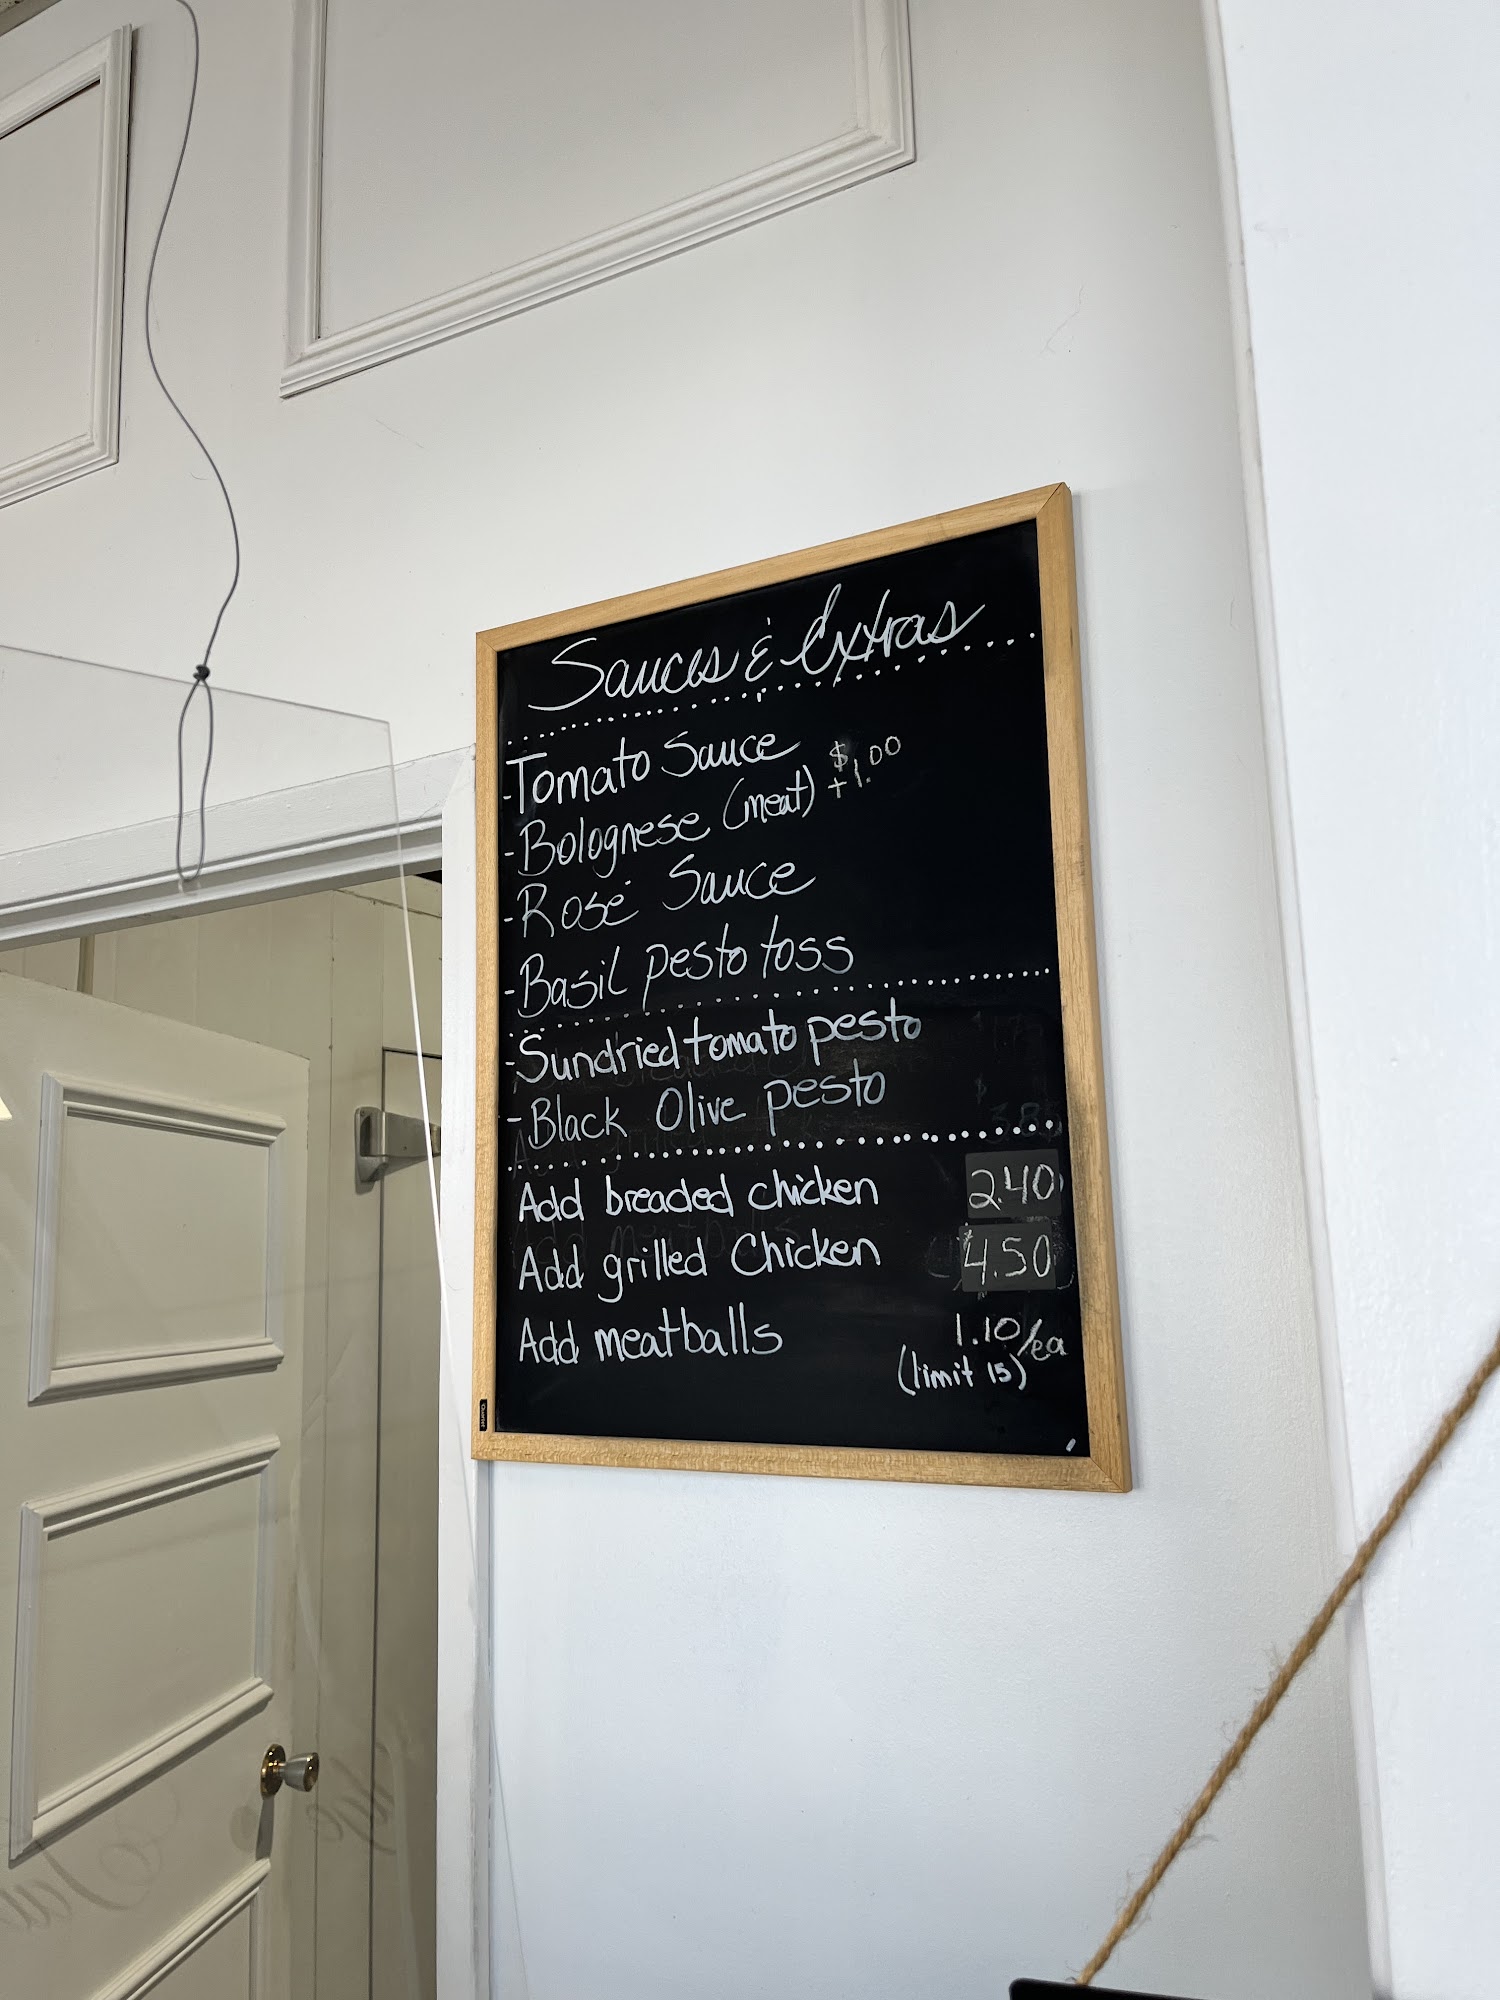 Sauces & Extras
-Tomato Sauce
-Bolognese (meat) +$1.00
-Rosé Sauce
-Basil pesto toss
-Sundried tomato pesto
-Black Olive pesto
Add breaded chicken 2.40
Add grilled Chicken $4.50
Add meatballs 1.10/ea
(limit 15)
Quartet